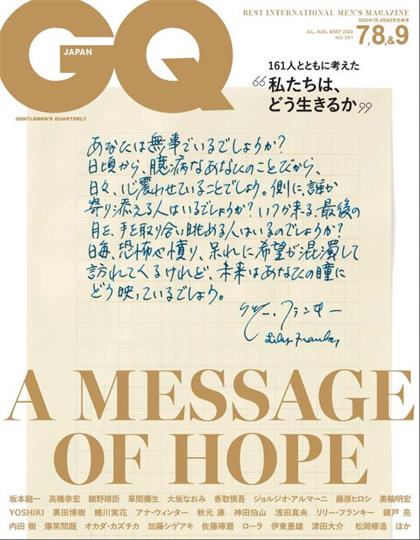 BEST INTERNATIONAL MEN'S MAGAZINE
GQ
JAPAN
GENTLEMEN'S QUARTERLY
JUL., AUG., &SEP. 2020
NO. 201
7,8,&9
161人とともに考えた
“私たちは、
どう生きるか”
あなたは無事でいるでしょうか?
日頃から、臆病なあなたのことだから、
日々、心震わせていることでしょう。側に、誰か
寄り添える人はいるでしょうか?いつか来る、最後の
日を、手を取り合い眺める人はいるのでしょうか?
日毎、恐怖や憤り、呆れに希望が混濁して
訪れてくるけれど、未来はあなたの瞳に
どう映っているでしょう。
リリー・フランキー
Lily Franky
A MESSAGE
OF HOPE
坂本龍一 高橋幸宏 細野晴臣 草間彌生 大坂なおみ 香取慎吾 ジョルジオ・アルマーニ 藤原ヒロシ 美輪明宏
YOSHIKI 黒田博樹 蜷川実花 アナ・ウィンター 秋元 康 神田伯山 浅田真央 リリー・フランキー 錦戸 亮
内田 樹 爆笑問題 オカダ・カズチカ 加藤シゲアキ 佐藤琢磨 ローラ 伊東豊雄 津田大介 松岡修造 ほか